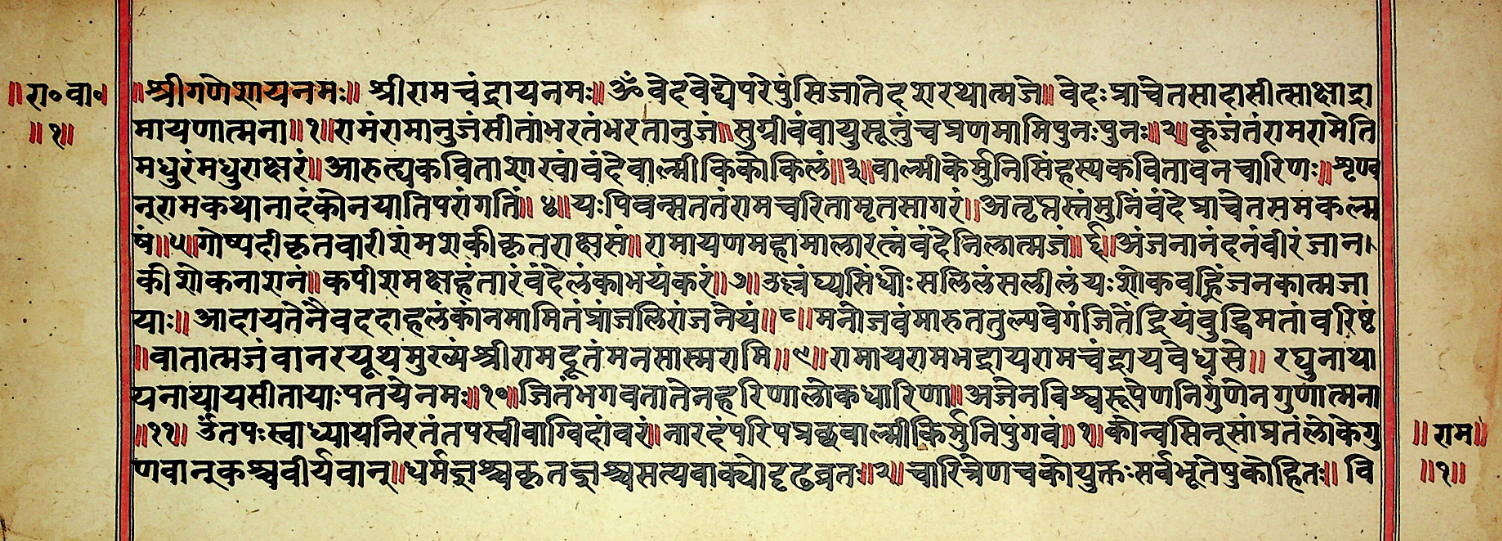 ॥रा॰वा॰॥
॥१॥
॥श्रीगणेशायनमः॥ श्रीरामचंद्रायनमः॥ॐवेदवेद्येपरेपुंसिजातेदशरथात्मजे॥वेदःप्राचेतसादासीत्साक्षाद्रा
मायणात्मना॥१॥रामंरामानुजंसीतांभरतंभरतानुजं॥सुग्रीवंवायुसूनुंचप्रणमामिपुनःपुनः॥२॥कूजंतंरामरामेति
मधुरंमधुराक्षरं॥आरुह्यकविताशाखांवंदेवाल्मीकिकोकिलं॥३॥वाल्मीकेर्मुनिसिंहस्यकवितावनचारिणः॥शृण्व
न्रामकथानादंकोनयातिपरांगतिं॥४॥यःपिवन्सततंरामचरितामृतसागरं॥अतृप्तस्तंमुनिंवंदेप्राचेतसमकल्म
षं॥५॥गोष्पदीकृतवारीशंमशकीकृतराक्षसं॥रामायणमहामालारत्नंवंदेनिलात्मजं॥६॥अंजनानंदनंवीरंजान।
कीशोकनाशनं॥कपीशमक्षहंतारंवंदेलंकाभयंकरं॥७॥उल्लंघ्यसिंधोःसलिलंसलीलंयःशोकवह्निंजनकात्मजा
याः॥आदायतेनैवददाहलंकांनमामितंप्रांजलिरांजनेयं॥८॥मनोजवंमारुततुल्यवेगंजितेंद्रियंवुद्धिमतांवरिष्ठं
॥वातात्मजंवानरयूथमुख्यंश्रीरामदूतंमनसास्मरामि॥९॥रामायरामभद्रायरामचंद्रायवेधसे॥रघुनाथा
यनाथायसीतायाःपतयेनमः॥१०॥जितंभगवतातेनहरिणालोकधारिणा॥अजेनविश्वरूपेणनिर्गुणेनगुणात्मना
॥११॥ उँतपःस्वाध्यायनिरतंतपस्वीवाग्विदांवरं॥नारदंपरिपप्रछवाल्मीकिर्मुनिपुंगवं॥१॥कोन्वसिन्सांप्रतंलोकेगु
णवान्कश्चवीर्यवान्॥धर्मज्ञश्चकृतज्ञश्चसत्यवाक्योदृढव्रतः॥२॥चारित्रेणचकोयुक्तःसर्वभूतेषुकोहितः॥ वि
॥राम॥
॥१॥